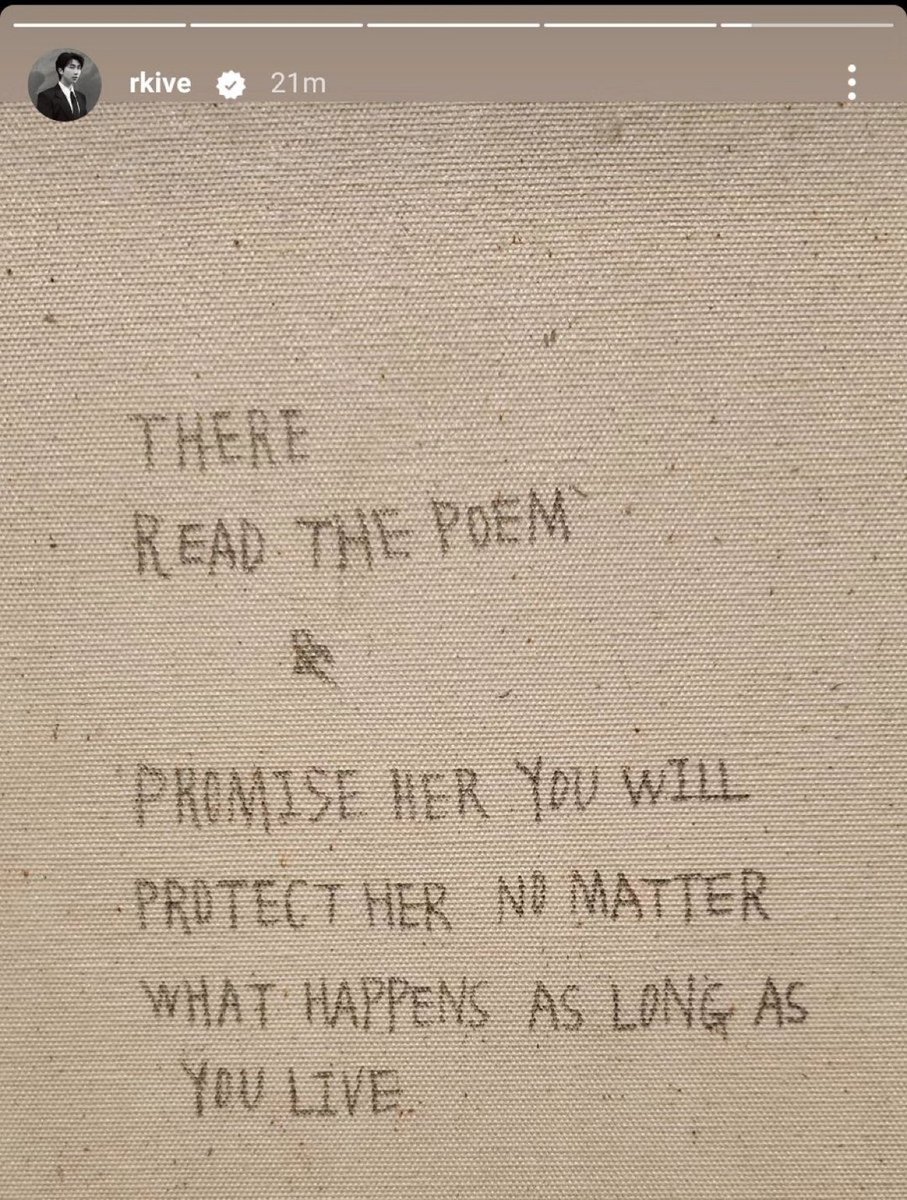 rkive 21m
THERE
READ THE POEM
PROMISE HER YOU WILL
PROTECT HER NO MATTER
WHAT HAPPENS AS LONG AS
YOU LIVE.